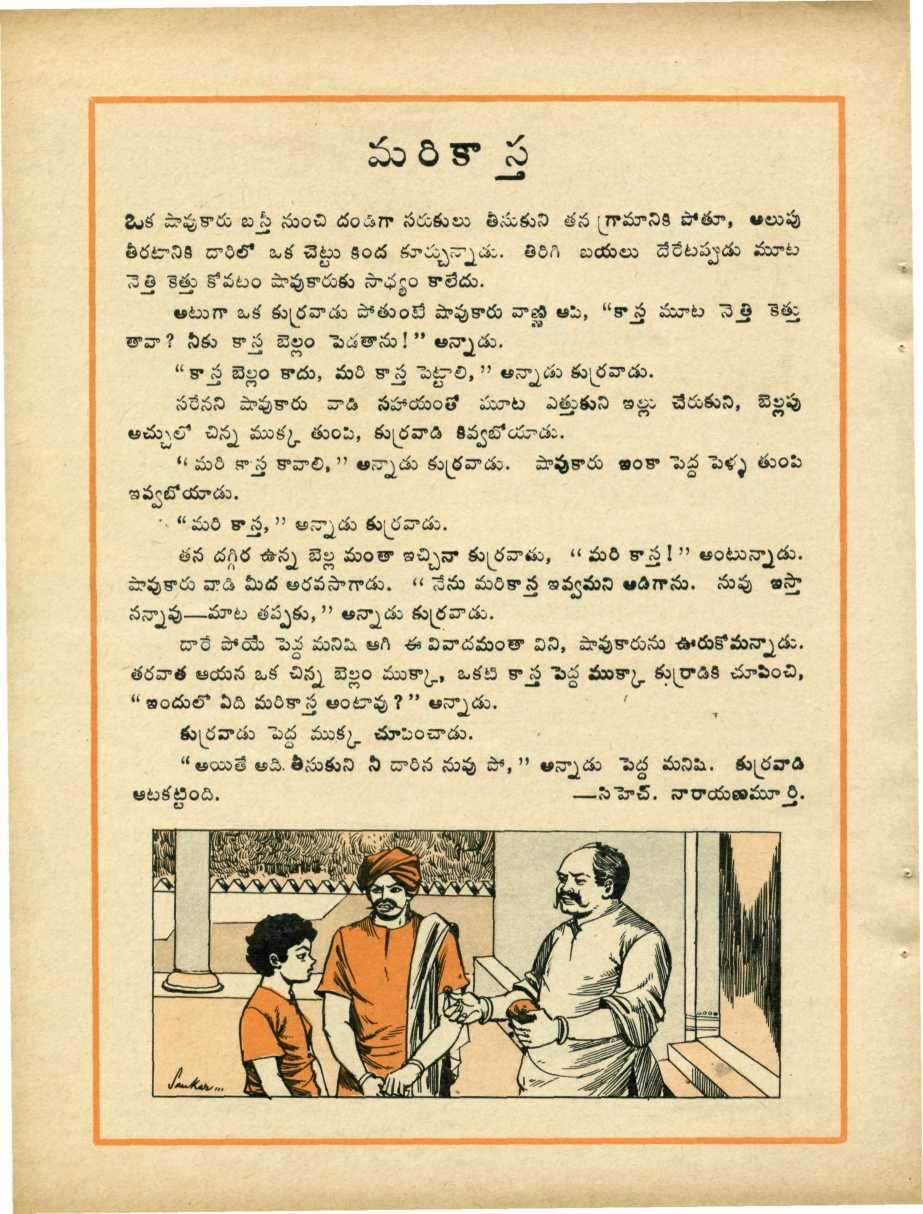 మరికాస్త
ఒక షావుకారు బస్తీ నుంచి దండిగా సరుకులు తీసుకుని తన గ్రామానికి పోతూ, అలుపు
తీరటానికి దారిలో ఒక చెట్టు కింద కూర్చున్నాడు. తిరిగి బయలు దేరేటప్పుడు మూట
నెత్తి కెత్తు కోవటం షావుకారుకు సాధ్యం కాలేదు.
అటుగా ఒక కుర్రవాడు పోతుంటే షావుకారు వాణ్ణి ఆపి, “కాస్త మూట నెత్తి కెత్తు
తావా? నీకు కాస్త బెల్లం పెడతాను!” అన్నాడు.
“కాస్త బెల్లం కాదు, మరి కాస్త పెట్టాలి,” అన్నాడు కుర్రవాడు.
సరేనని షావుకారు వాడి సహాయంతో మూట ఎత్తుకుని ఇల్లు చేరుకుని, బెల్లపు
అచ్చులో చిన్న ముక్క తుంపి, కుర్రవాడి కివ్వబోయాడు.
“మరి కాస్త కావాలి,” అన్నాడు కుర్రవాడు. షావుకారు ఇంకా పెద్ద పెళ్ళ తుంపి
ఇవ్వబోయాడు.
“మరి కాస్త,” అన్నాడు కుర్రవాడు.
తన దగ్గిర ఉన్న బెల్ల మంతా ఇచ్చినా కుర్రవాడు, “మరి కాస్త!” అంటున్నాడు.
షావుకారు వాడి మీద అరవసాగాడు. “నేను మరికాస్త ఇవ్వమని అడిగాను. నువు ఇస్తా
నన్నావు—మాట తప్పకు,” అన్నాడు కుర్రవాడు.
దారే పోయే పెద్ద మనిషి ఆగి ఈ వివాదమంతా విని, షావుకారును ఊరుకోమన్నాడు.
తరవాత ఆయన ఒక చిన్న బెల్లం ముక్కా, ఒకటి కాస్త పెద్ద ముక్కా కుర్రాడికి చూపించి,
“ఇందులో ఏది మరికాస్త అంటావు?” అన్నాడు.
కుర్రవాడు పెద్ద ముక్క చూపించాడు.
“అయితే అది తీసుకుని నీ దారిన నువు పో,” అన్నాడు పెద్ద మనిషి. కుర్రవాడి
ఆటకట్టింది. —సి హెచ్. నారాయణమూర్తి.
Sankar...